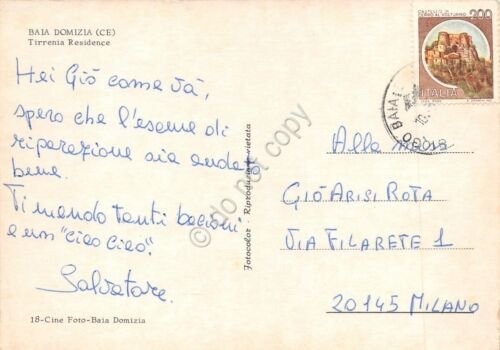 BAIA DOMIZIA (CE)
Tirrenia Residence
Hei Giò come và,
spero che l'esame di
riparazione sia andato
bene.
Ti mando tanti bacioni
e un "ciao ciao".
Salvatore.
18-Cine Foto-Baia Domizia
Fotocolor - Riproduzione vietata
do not copy
200
ITALIA
BAIA
Alla
GIÒ ARISI ROTA
VIA FILARETE 1
20145 MILANO